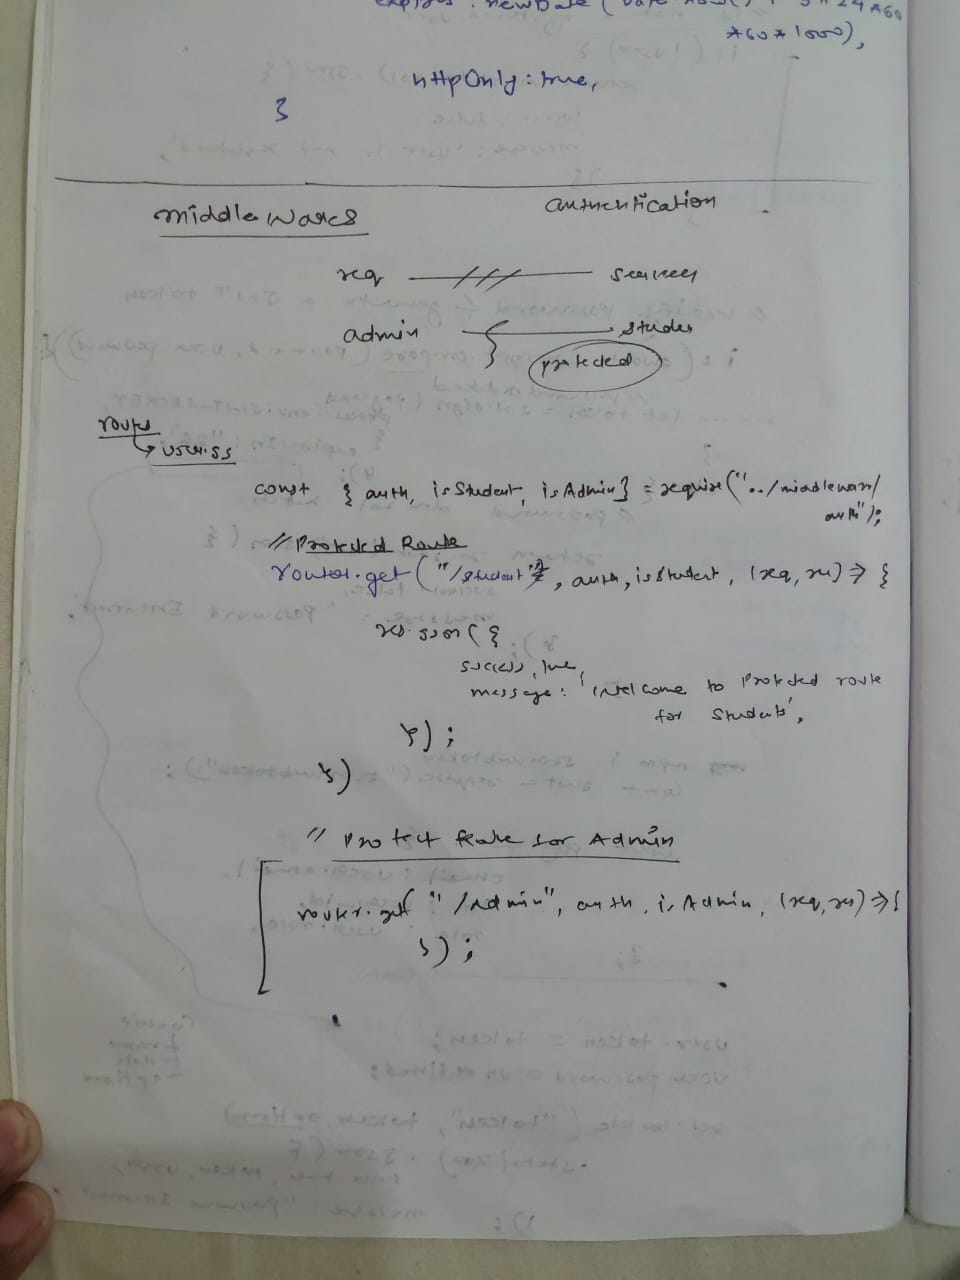 expires: new Date( Date.now() + 3*24*60
*60*1000),
httpOnly: true,
}
Middlewares
authentication
req
server
admin
protected
routes
user.js
const { auth, isStudent, isAdmin} = require("../middleware/
auth");
// Protected Route
router.get("/student", auth, isStudent, (req, res) => {
res.json({
success, true,
message: 'Welcome to Protected route
for Students',
});
})
// Protect Route for Admin
router.get( "/Admin", auth, isAdmin, (req, res) => {
});